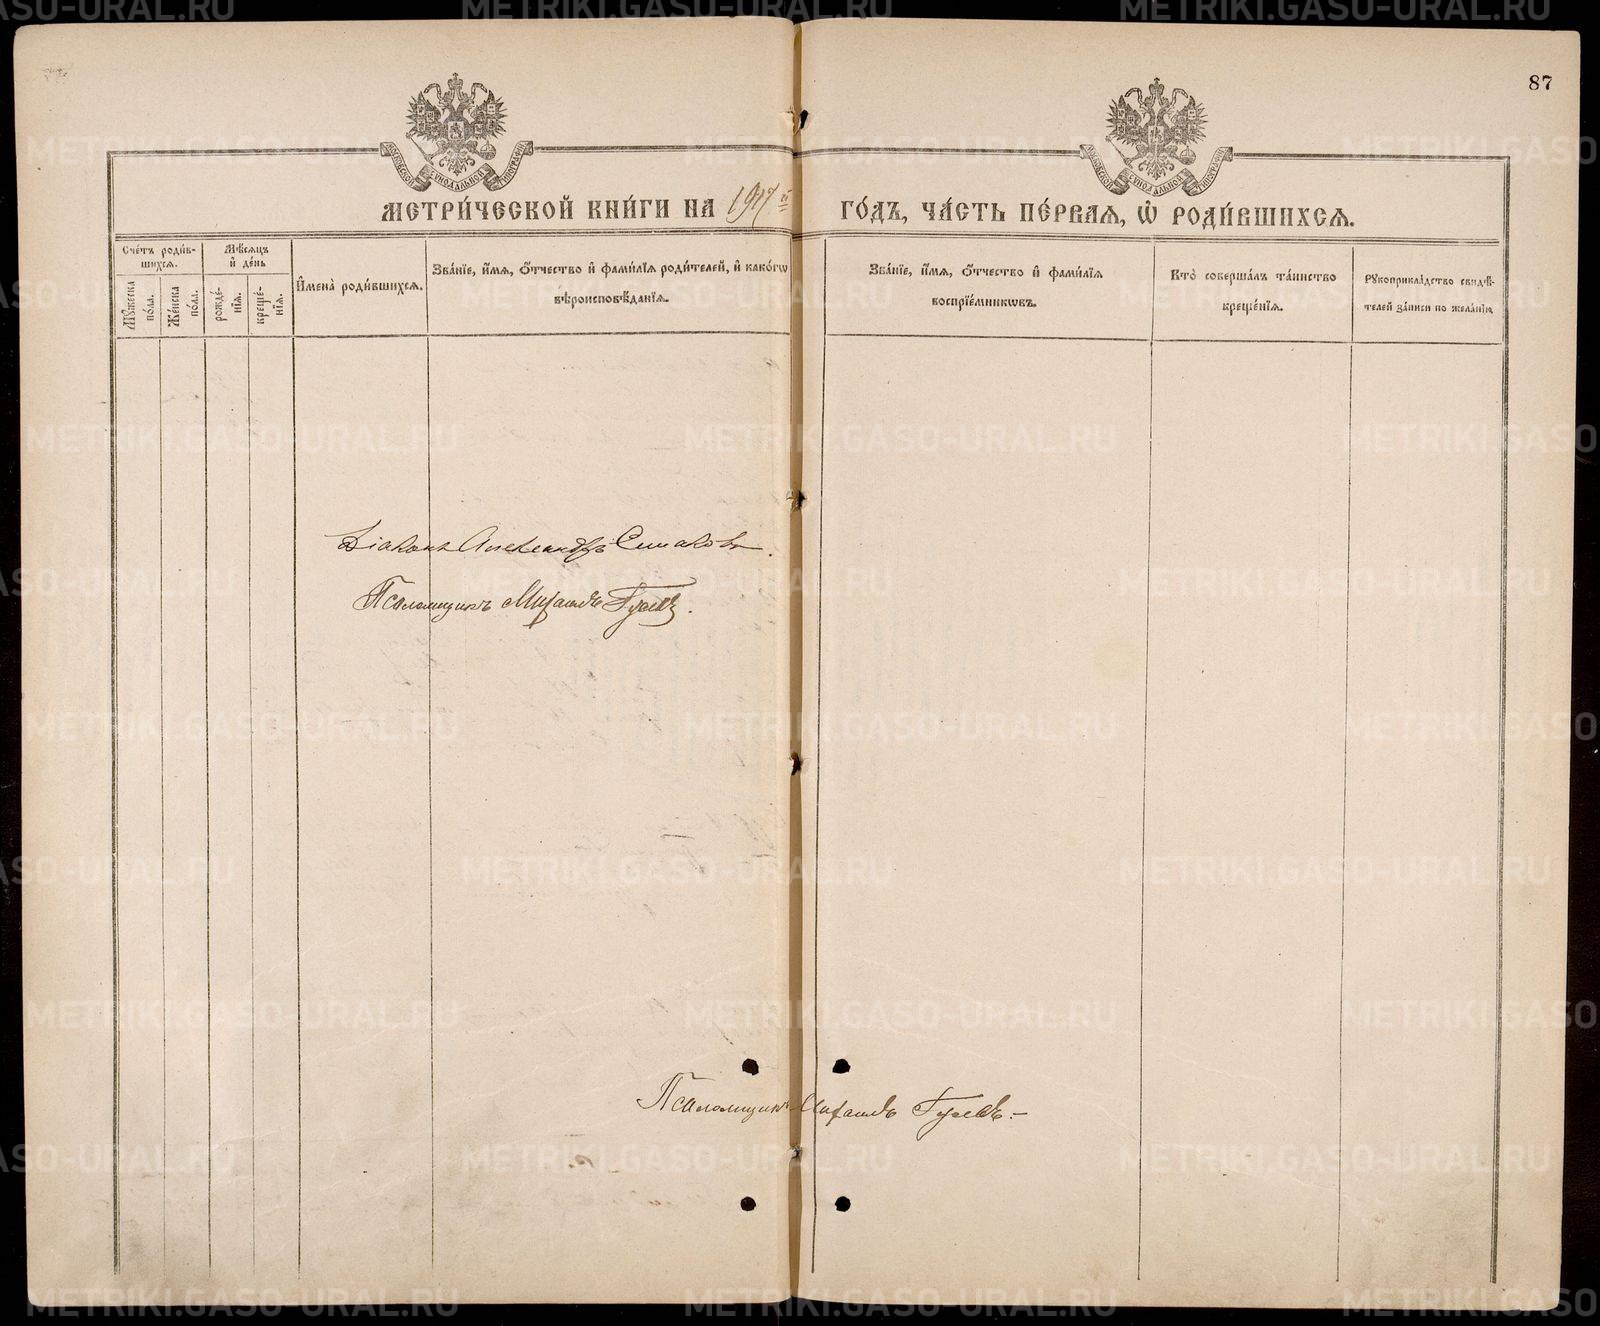 87
МОСКОВСКОЙ СѴНОДАЛЬНОЙ ТИПОГРАФІИ
МОСКОВСКОЙ СѴНОДАЛЬНОЙ ТИПОГРАФІИ
МЕТРИ́ЧЕСКОЙ КНИ́ГИ НА 1917 й ГО́ДЪ, ЧА́СТЬ ПЕ́РВАЯ, Ѡ҆ РОДИ́ВШИХСЯ.
Сче́тъ роди́вшихся.
Мꙋ́жеска по́ла.
Же́нска по́ла.
Мѣ́сяцъ и҆ де́нь
рожде́нїя.
креще́нїя.
И҆мена̀ роди́вшихся.
Зва́нїе, и҆́мя, ѻ҆́тчество и҆ фами́лїя роди́телей, и҆ како́гѡ
вѣроисповѣ́данїя.
Зва́нїе, и҆́мя, ѻ҆́тчество и҆ фами́лїя
воспрїе́мникѡвъ.
Кто̀ соверша́лъ та́инство
креще́нїя.
Рꙋкоприкла́дство свидѣ́-
телей за́писи по жела́нїю
Діаконъ Александръ Симаковъ.
Псаломщикъ Михаилъ Гусевъ.
Псаломщикъ Михаилъ Гусевъ.–
METRIKI.GASO-URAL.RU